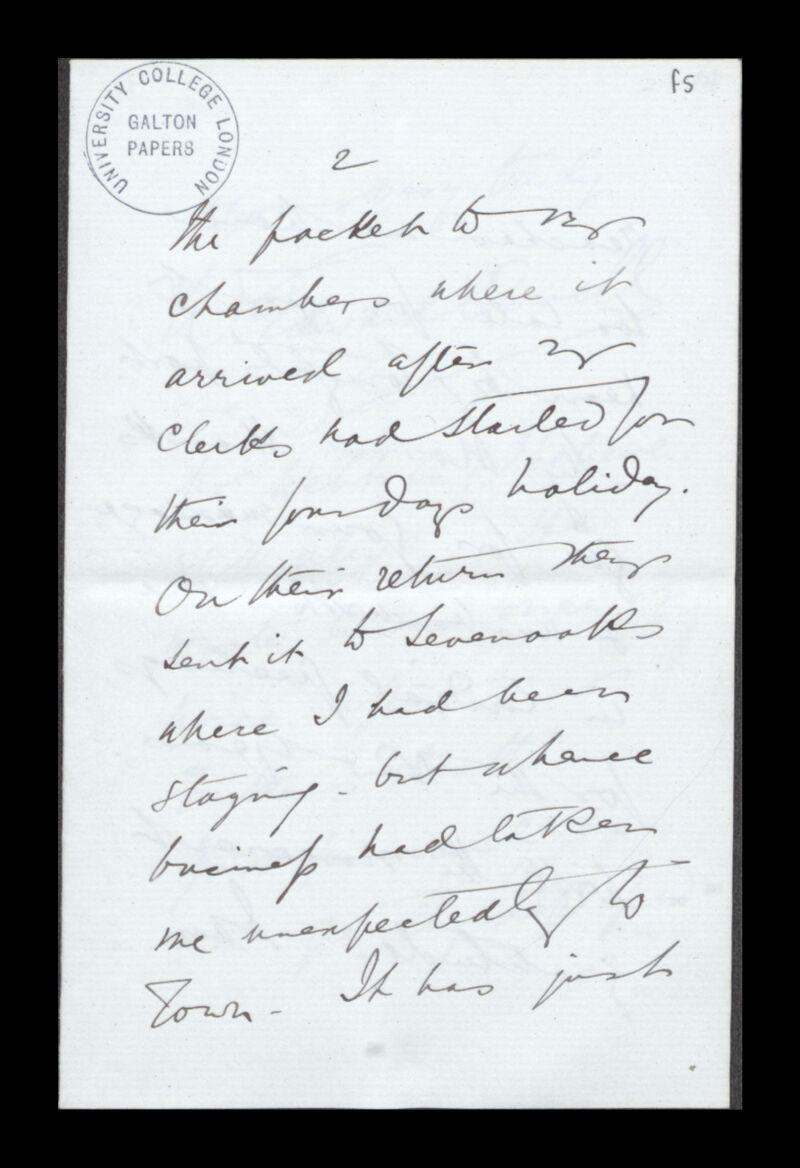 f5
UNIVERSITY COLLEGE LONDON
GALTON
PAPERS
2
the packet to my
chambers where it
arrived after my
clerks had started for
their four days holiday.
On their return they
sent it to Sevenoaks
where I had been
staying - but whence
business had taken
me unexpectedly to
Town - It has just